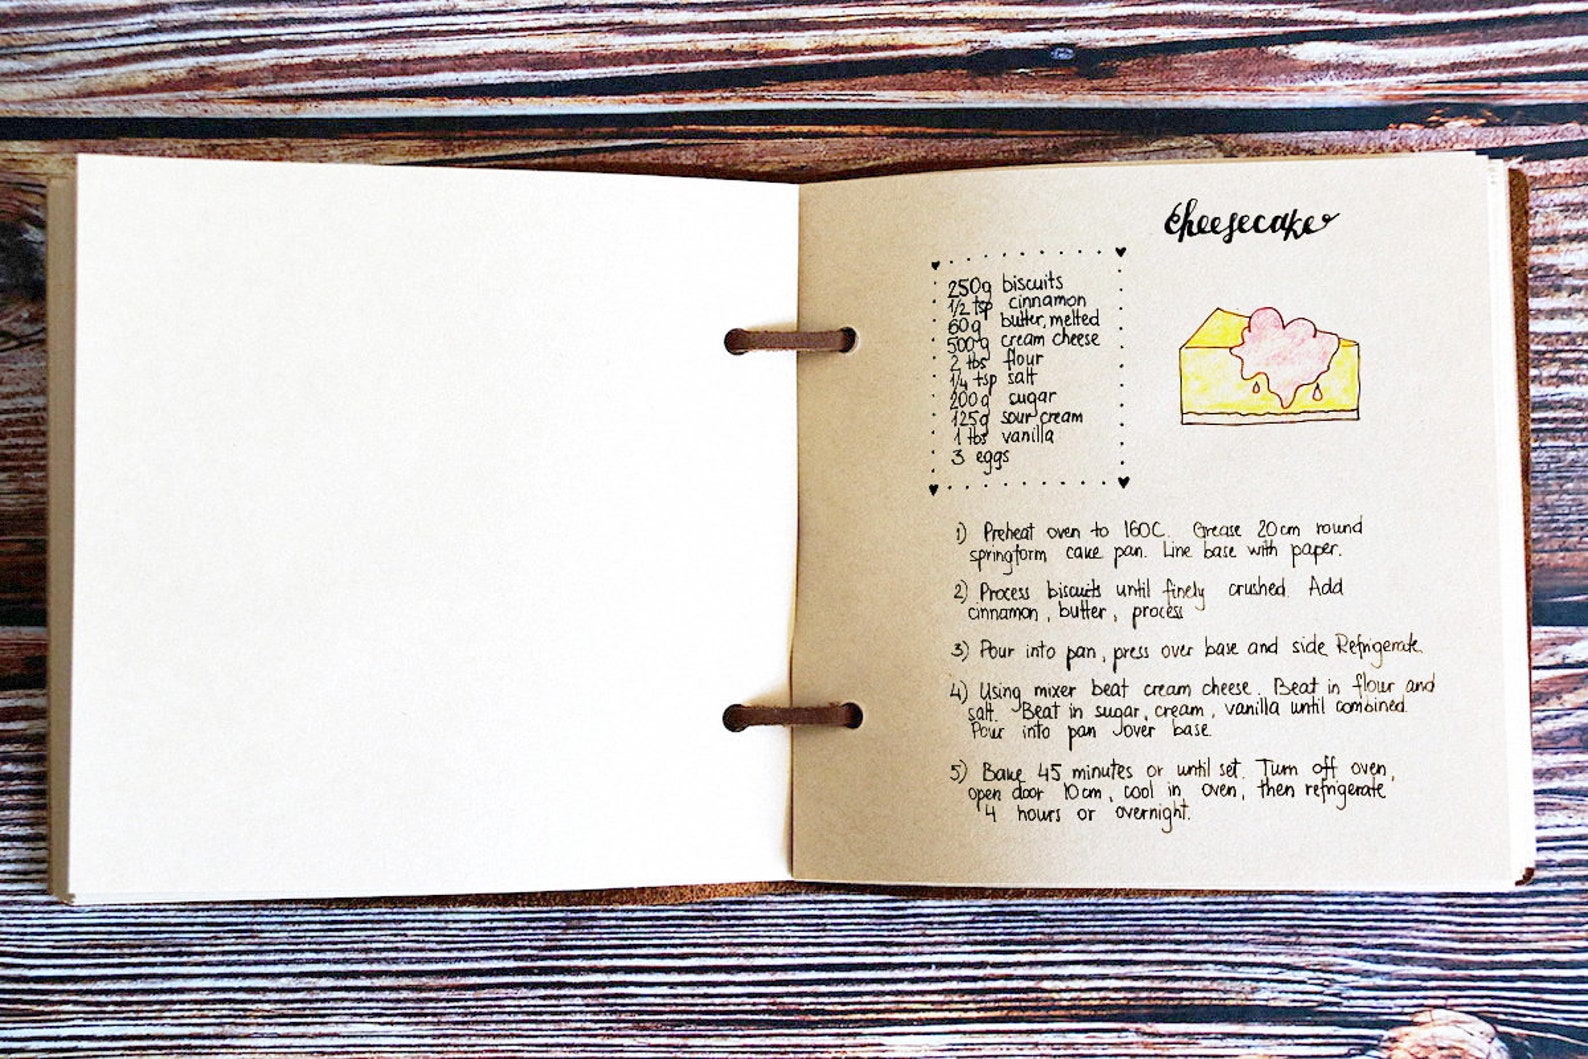 Cheesecake
250g biscuits
1/2 tsp cinnamon
60g butter, melted
500g cream cheese
2 tbs flour
1/4 tsp salt
200g sugar
125g sour cream
1 tbs vanilla
3 eggs
1) Preheat oven to 160C. Grease 20cm round
springform cake pan. Line base with paper.
2) Process biscuits until finely crushed. Add
cinnamon, butter, process
3) Pour into pan, press over base and side. Refrigerate.
4) Using mixer beat cream cheese. Beat in flour and
salt. Beat in sugar, cream, vanilla until combined.
Pour into pan over base.
5) Bake 45 minutes or until set. Turn off oven,
open door 10cm, cool in oven, then refrigerate
4 hours or overnight.